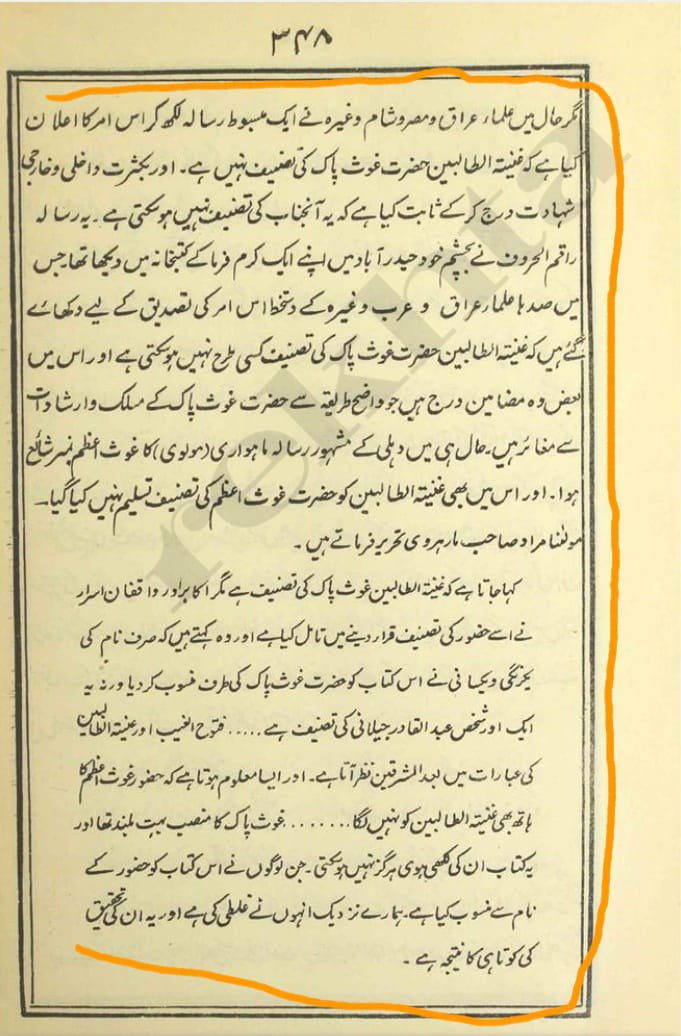 ۳۴۸
مگر حال میں علماء عراق و مصر و شام وغیرہ نے ایک مبسوط رسالہ لکھ کر اس امر کا اعلان
کیا ہے کہ غنیۃ الطالبین حضرت غوث پاک کی تصنیف نہیں ہے۔ اور بکثرت داخلی و خارجی
شہادت درج کر کے ثابت کیا ہے کہ یہ آنجناب کی تصنیف نہیں ہو سکتی ہے۔ یہ رسالہ
راقم الحروف نے بچشم خود حیدر آباد میں اپنے ایک کرم فرما کے کتبخانہ میں دیکھا تھا۔ جس
میں صدہا علماء عراق و عرب وغیرہ کے دستخط اس امر کی تصدیق کے لیے دکھائے
گئے ہیں کہ غنیۃ الطالبین حضرت غوث پاک کی تصنیف کسی طرح نہیں ہو سکتی ہے اور اس میں
بعض وہ مضامین درج ہیں جو واضح طریقہ سے حضرت غوث پاک کے مسلک و ارشادات
سے مغائر ہیں۔ حال ہی میں دہلی کے مشہور رسالہ ماہواری (مولوی) کا غوث اعظم نمبر شائع
ہوا۔ اور اس میں بھی غنیۃ الطالبین کو حضرت غوث اعظم کی تصنیف تسلیم نہیں کیا گیا۔
مولٰنا مراد صاحب مارہروی تحریر فرماتے ہیں۔
کہا جاتا ہے کہ غنیۃ الطالبین غوث پاک کی تصنیف ہے مگر اکابر اور واقفان اسرار
نے اسے حضور کی تصنیف قرار دینے میں تامل کیا ہے اور وہ کہتے ہیں کہ صرف نام کی
یکرنگی و یکسانی نے اس کتاب کو حضرت غوث پاک کی طرف منسوب کر دیا ورنہ یہ
ایک اور شخص عبد القادر جیلانی کی تصنیف ہے ..... فتوح الغیب اور غنیۃ الطالبین
کی عبارات میں بعد المشرقین نظر آتا ہے۔ اور ایسا معلوم ہوتا ہے کہ حضور غوث اعظم کا
ہاتھ بھی غنیۃ الطالبین کو نہیں لگا ....... غوث پاک کا منصب بہت بلند تھا اور
یہ کتاب ان کی لکھی ہوی ہرگز نہیں ہو سکتی۔ جن لوگوں نے اس کتاب کو حضور کے
نام سے منسوب کیا ہے۔ ہمارے نزدیک انہوں نے غلطی کی ہے اور یہ ان کی تحقیق
کی کوتاہی کا نتیجہ ہے۔
rekhta